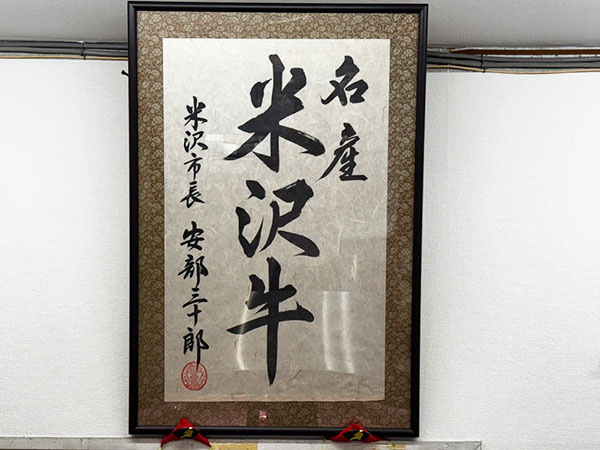 名産
米沢牛
米沢市長 安部三十郎